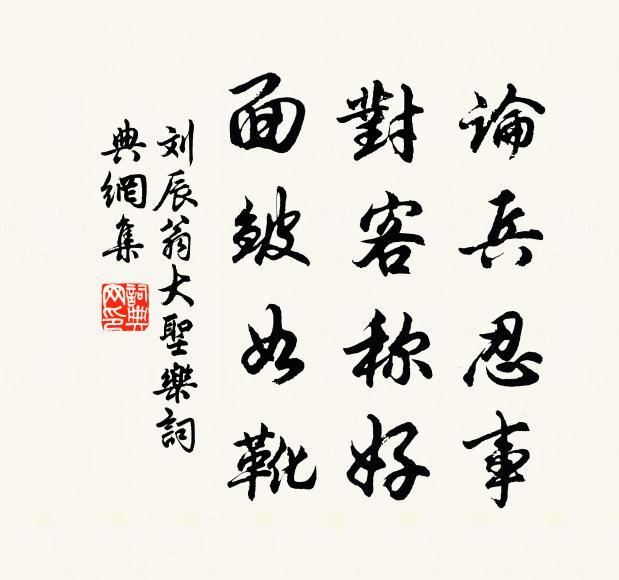 論兵忍事
對客称好
面皴如靴
刘辰翁大聖樂詞
典網集
詞典网印